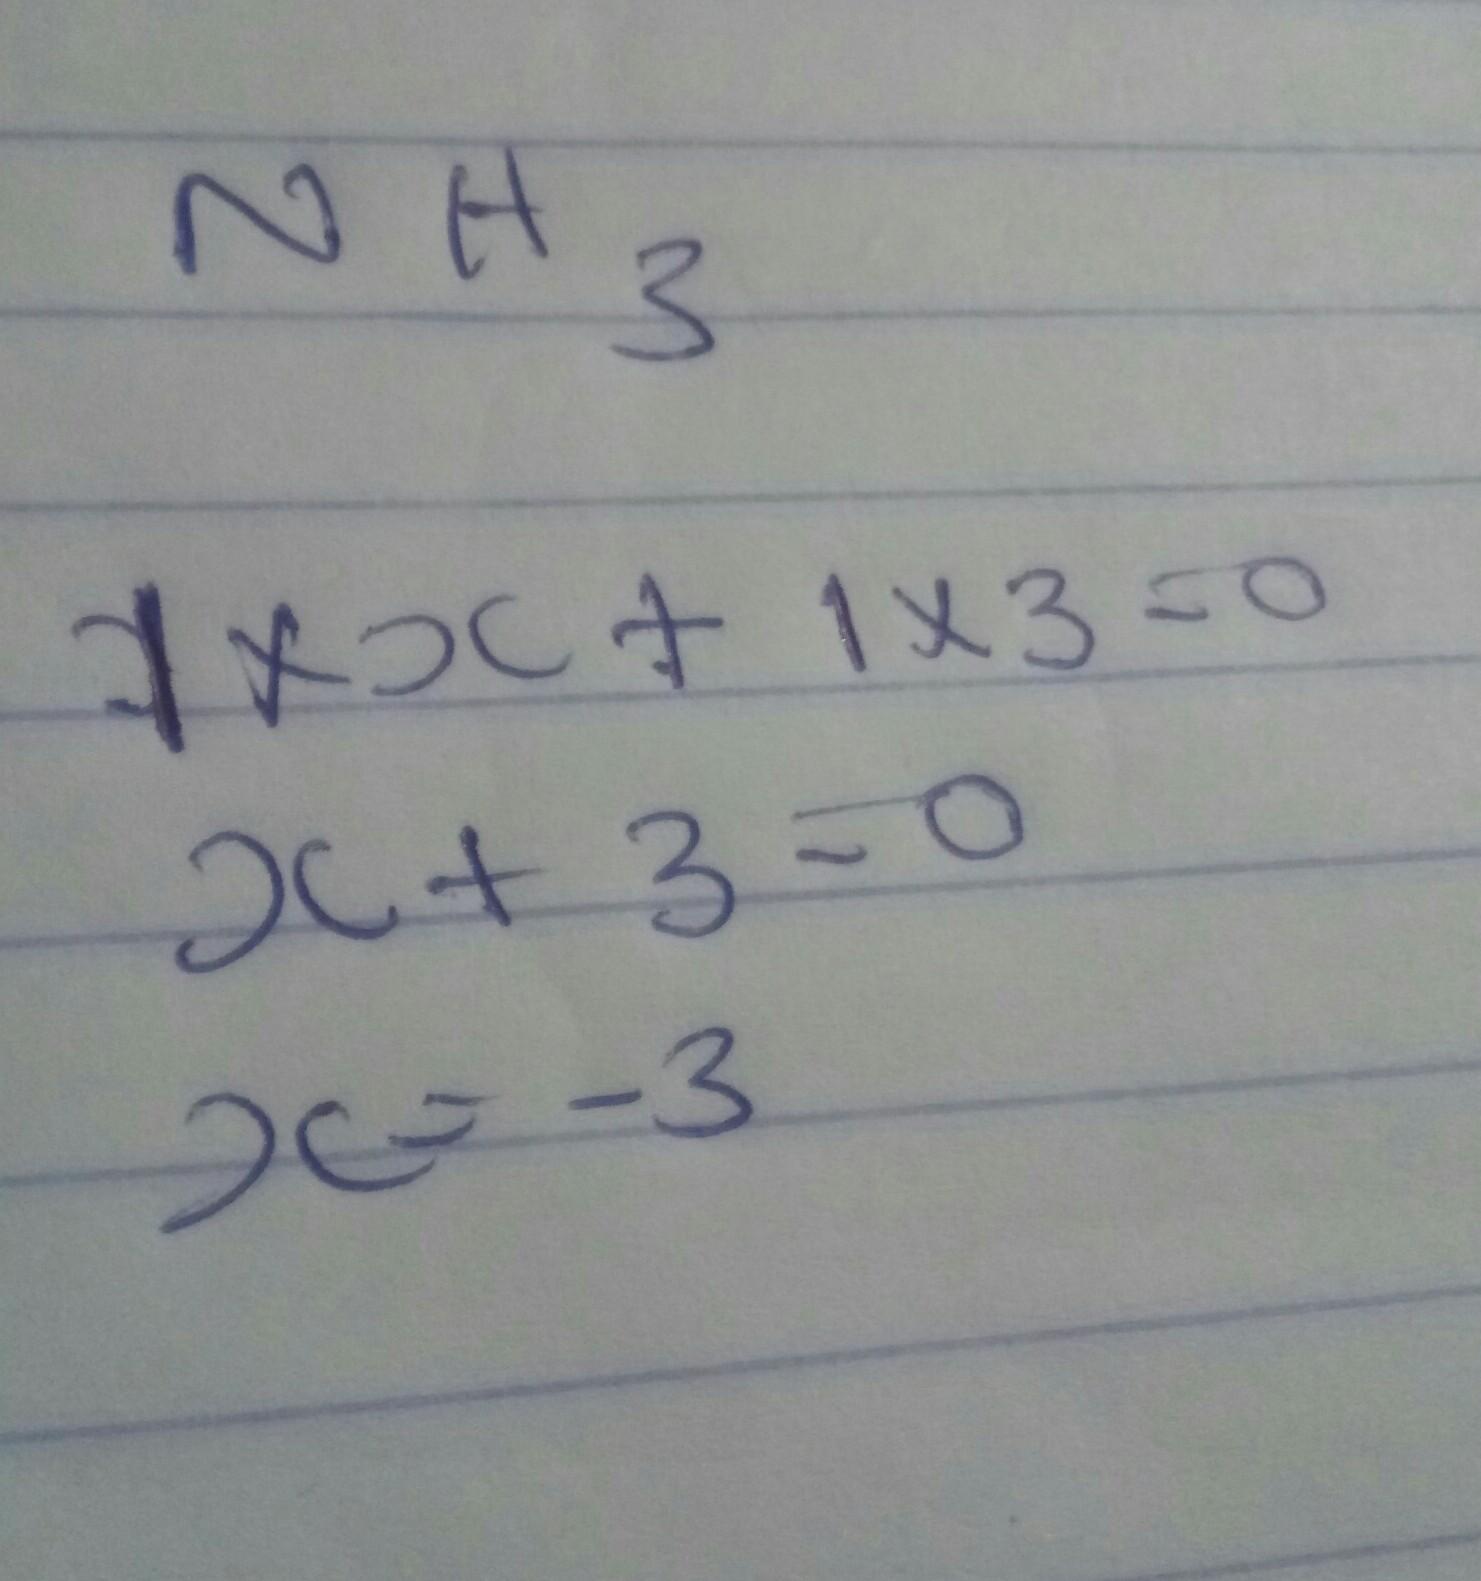 NH3
1×x+1×3=0
x+3=0
x=-3